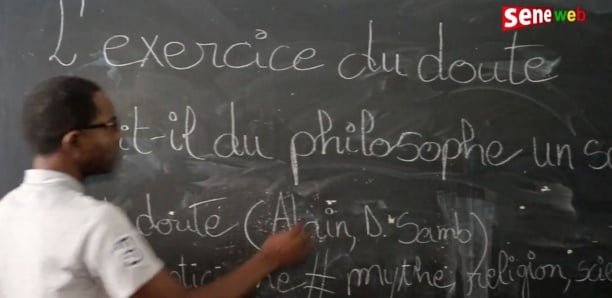 Seneweb
L'exercice du doute
it-il du philosophe un
doute (Alain, D. Samb)
# mythe, religion,